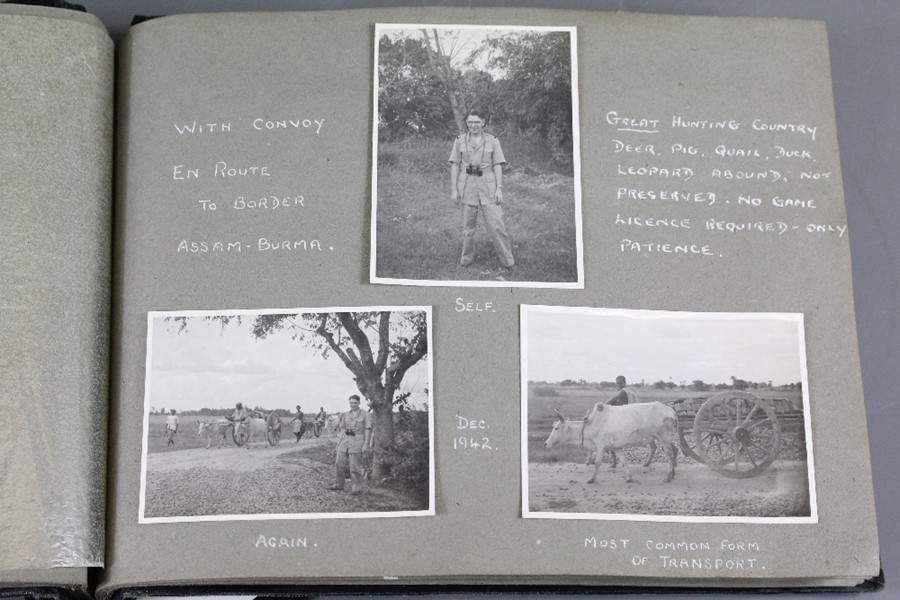 WITH CONVOY
EN ROUTE
TO BORDER
ASSAM-BURMA.
GREAT HUNTING COUNTRY
DEER, PIG, QUAIL, DUCK,
LEOPARD ABOUND, NOT
PRESERVED. NO GAME
LICENCE REQUIRED - ONLY
PATIENCE.
SELF.
DEC.
1942.
AGAIN.
MOST COMMON FORM
OF TRANSPORT.